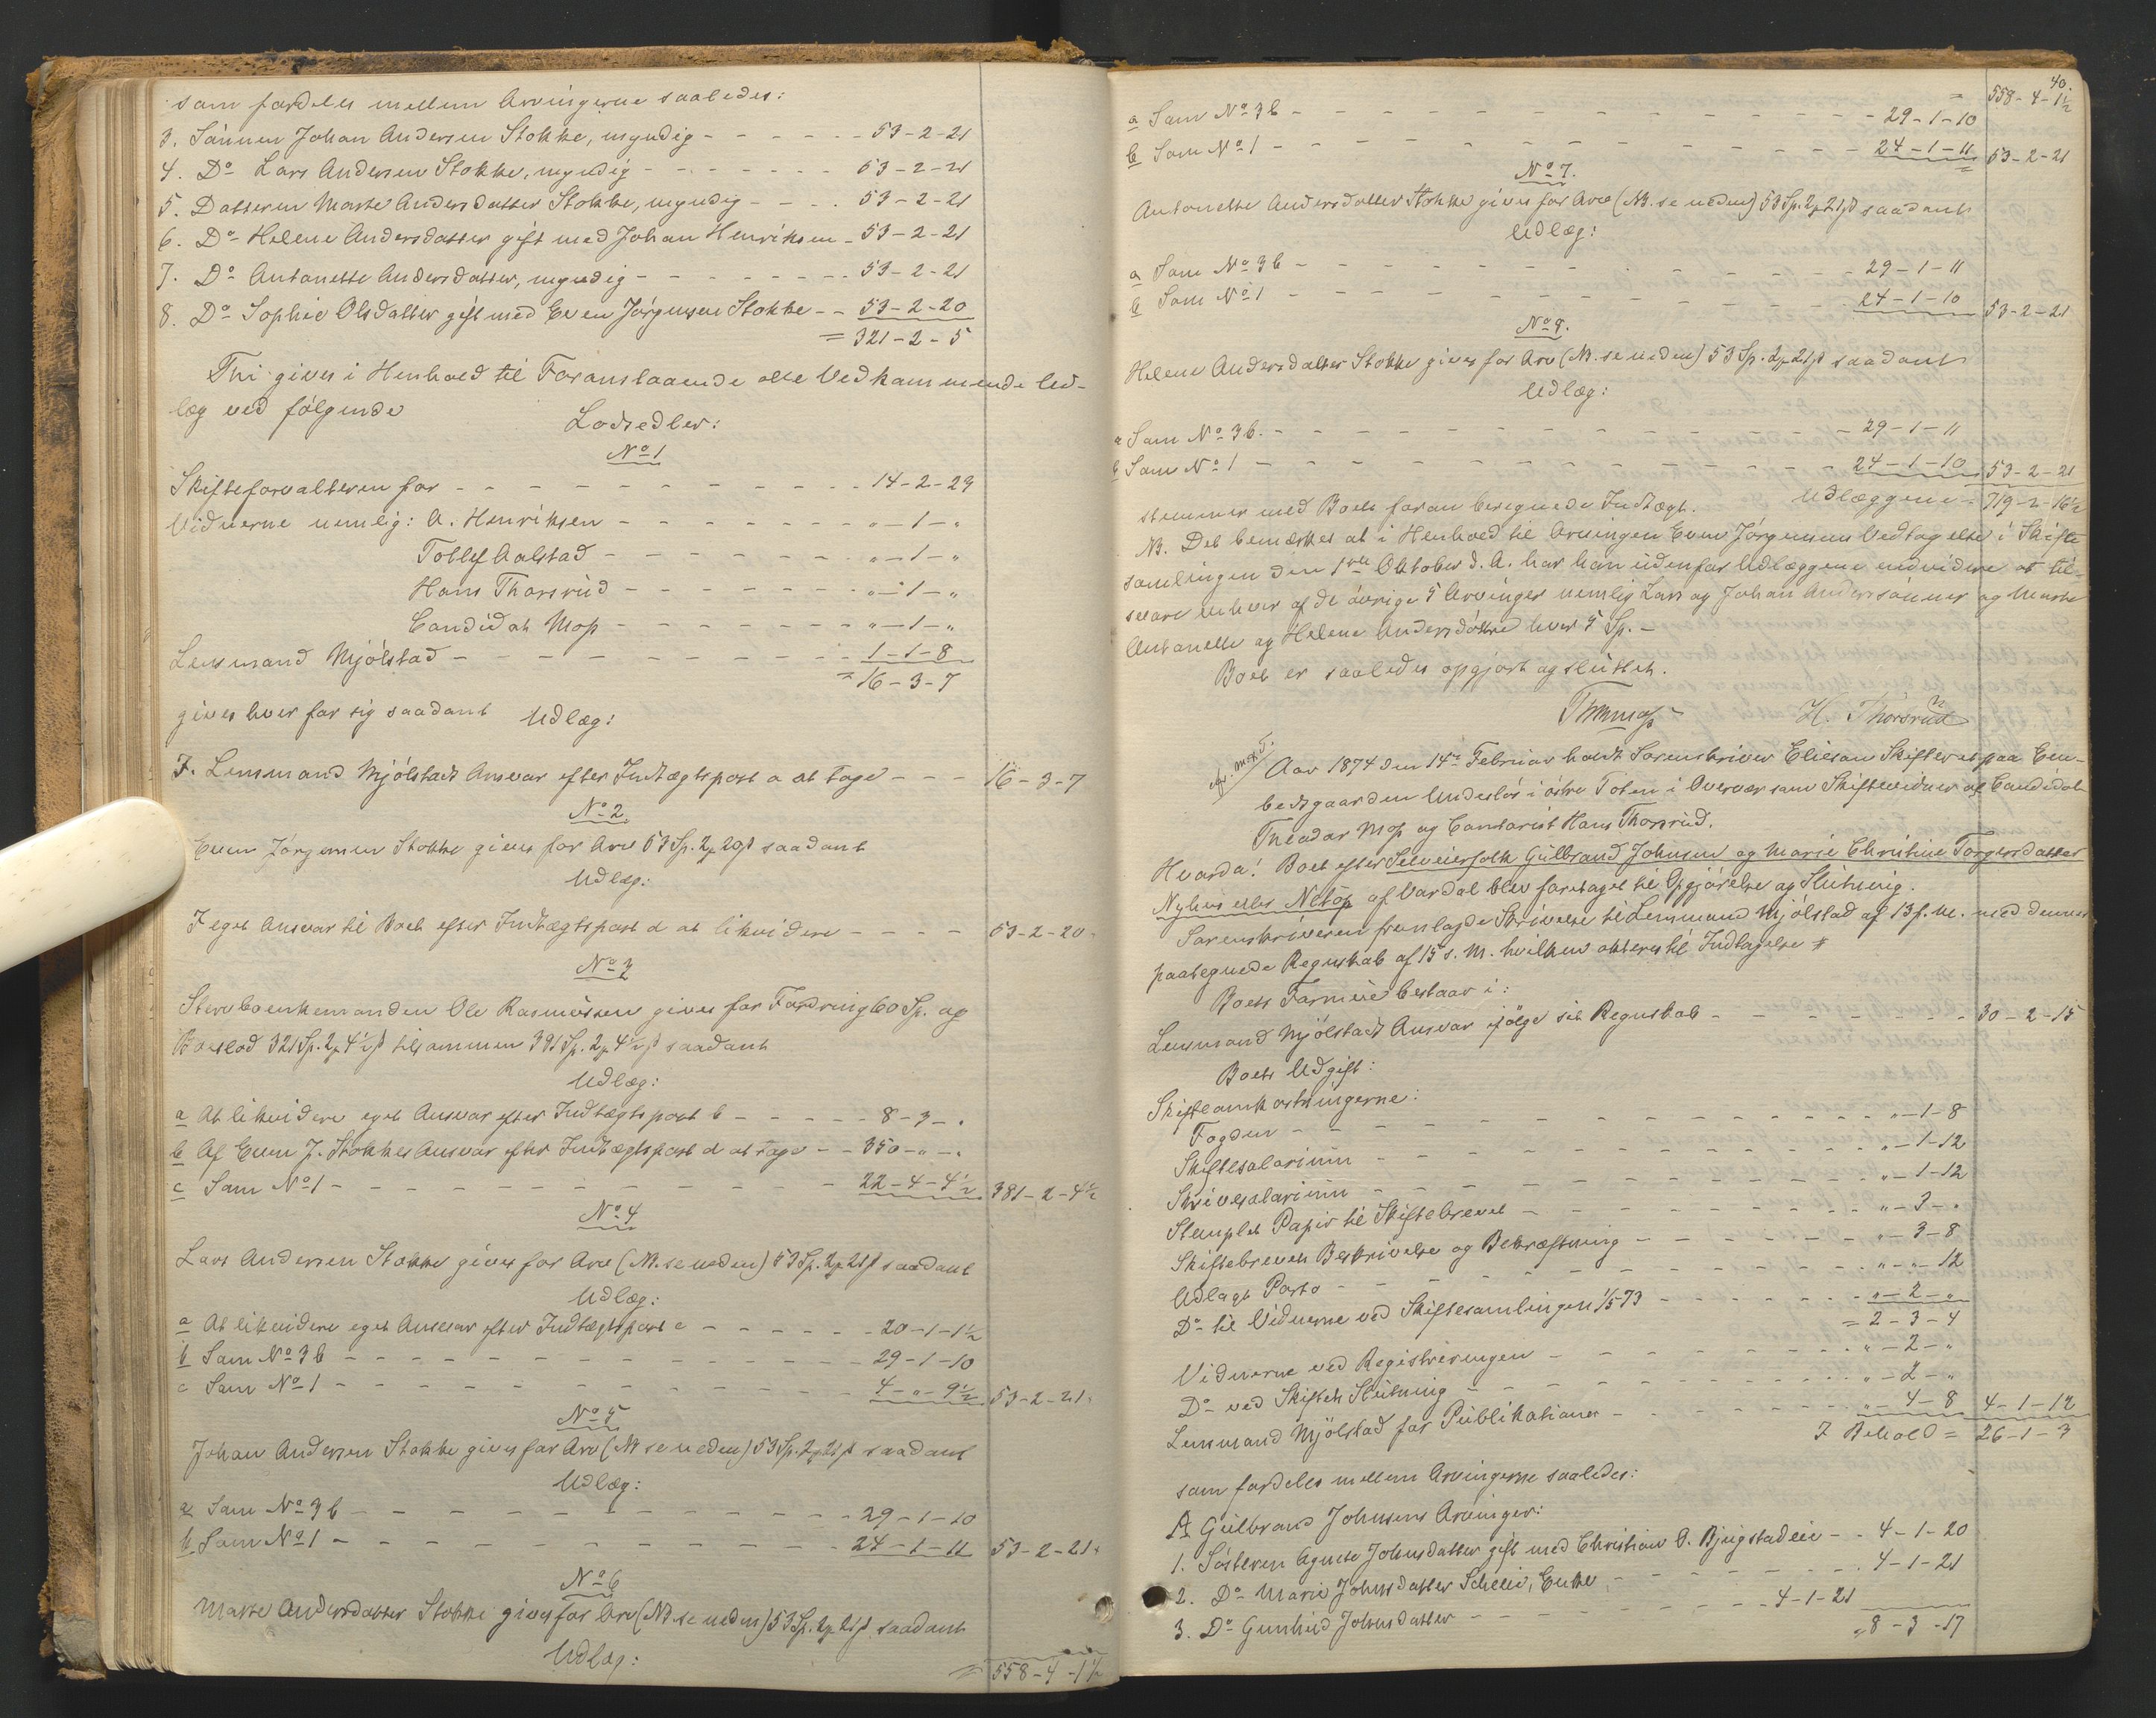 som fordeles mellem Arvingerne saaledes:
3. Sønnen Johan Andersen Stokke, myndig - - - - - - 53-2-21
4. Do Lars Andersen Stokke, myndig - - - - - - 53-2-21
5. Datteren Marte Andersdatter Stokke, myndig - - - - 53-2-21
6. Do Helene Andersdatter gift med Johan Henriksen - 53-2-21
7. Do Antonette Andersdatter, myndig - - - - - - 53-2-21
8. Do Sophie Olsdatter gift med Even Jørgensen Stokke - - 53-2-20
= 321-2-5
Thi gives i Henhold til Foranstaaende alle Vedkommende Ud-
læg ved følgende
Lodsedler:
No 1
Skifteforvalteren for - - - - - - 14-2-23
Vidnerne nemlig: A. Henriksen - - - - - - „-1-„
Tollef Aalstad - - - - - - „-1-„
Hans Thorsrud - - - - - - „-1-„
Candidat Mop - - - - - - „-1-„
Lensmand Mjølstad - - - - - - 1-1-8
= 16-3-7
gives hver for sig saadant Udlæg:
I. Lensmand Mjølstads Ansvar efter Indtægtspost a at tage - - - 16-3-7
No 2
Even Jørgensen Stokke gives for Arv 53 Sp. 2 20 s saadant
Udlæg:
I eget Ansvar til Boet efter Indtægtspost d at likvidere - - - - 53-2-20
No 3
Stervboenkemanden Ole Rasmussen gives for Fordring 60 Sp. og
Boeslod 321 Sp. 2 4½ s tilsammen 381 Sp. 2 4½ s saadant
Udlæg:
a At likvidere eget Ansvar efter Indtægtspost b - - - - - 8-3-„
b Af Even J. Stokkes Ansvar efter Indtægtspost d at tage - - 350-„-„
c Som No 1 - - - - - - 22-4-4½ 381-2-4½
No 4
Lars Andersen Stokke gives for Arv (NB. se neden) 53 Sp. 2 21 s saadant
Udlæg:
a At likvidere eget Ansvar efter Indtægtspost c - - - - - 20-1-1½
b Som No 3 b - - - - - - 29-1-10
c Som No 1 - - - - - - 4-„-9½ 53-2-21
No 5
Johan Andersen Stokke gives for Arv (NB se neden) 53 Sp. 2 21 s saadant
Udlæg:
a Som No 3 b - - - - - - 29-1-10
b Som No 1 - - - - - - 24-1-11 53-2-21
No 6
Marte Andersdatter Stokke gives for Arv (NB. se neden) 53 Sp. 2 21 s saadant
Udlæg:
= 558-4-1½
40.
= 558-4-1½
a Som No 3 b - - - - - - 29-1-10
b Som No 1 - - - - - - 24-1-11 53-2-21
No 7.
Antonette Andersdatter Stokke gives for Arv (NB. se neden) 53 Sp. 2 21 s saadant
Udlæg:
a Som No 3 b - - - - - - 29-1-11
b Som No 1 - - - - - - 24-1-10 53-2-21
No 8.
Helene Andersdatter Stokke gives for Arv (NB. se neden) 53 Sp. 2 21 s saadant
Udlæg:
a Som No 3 b. - - - - - - 29-1-11
b Som No 1 - - - - - - 24-1-10 53-2-21
Udlæggene = 719-2-16½
stemmer med Boets foran beregnede Indtægt.
NB. Det bemærkes at i Henhold til Arvingen Even Jørgensens Vedtagelse i Skifte
samlingen den 1ste Oktober d. A. har han udenfor Udlæggene endvidere at til-
svare enhver af de øvrige 5 Arvinger nemlig Lars og Johan Anderssønner og Marte
Antonette og Helene Andersdøttre hver 5 Sp. -
Boet er saaledes opgjort og sluttet.
H. Thorsrud
Aar 1874 den 14de Februar holdt Sorenskriver Elieson Skifteret paa Em-
bedsgaarden Undeslös i östre Toten i Overvær som Skiftevidner af Candidat
Theodor Mop og Contorist Hans Thorsrud.
Hvorda: Boet efter Selveierfolk Gulbrand Johnsen og Marie Christine Torgersdatter
Nyhus eller Netop af Vardal blev foretaget til Opgjörelse og Slutning.
Sorenskriveren fremlagde Skrivelse til Lensmand Mjølstad af 13 f. M. med dennes
paategnede Regnskab af 15 s. M. hvilken akteres til Indtagelse #
Boets Formue bestaar i:
Lensmand Mjølstads Ansvar ifølge sit Regnskab - - - - - - 30-2-15
Boets Udgift:
Skifteomkostningerne:
Fogden - - - - - - „-1-8
Skiftesalarium - - - - - - „-1-12
Skriversalarium - - - - - - „-1-12
Stemplet Papir til Skiftebrevet - - - - - - „-3-„
Skiftebrevets Beskrivelse og Bekræftning - - - - - - „-3-8
Udlagt Porto - - - - - - „-„-12
Do til Vidnerne ved Skiftesamlingen 1/5 73 - - - - - - „-2-„
= 2-3-4
Vidnerne ved Registreringen - - - - - - „-2-„
Do ved Skiftets Slutning - - - - - - „-2-„
Lensmand Mjølstad for Publikationer - - - - - - „-4-8 4-1-12
I Behold = 26-1-3
som fordeles mellem Arvingerne saaledes:
A Gulbrand Johnsens Arvinger:
1. Søsteren Agnete Johnsdatter gift med Christian O. Bjugstadeie - - 4-1-20
2. Do Marie Johnsdatter Scheie, Enke - - - - - - 4-1-21
3. Do Gunhild Johnsdatter - - - - - - 4-1-21
„ 8-3-17